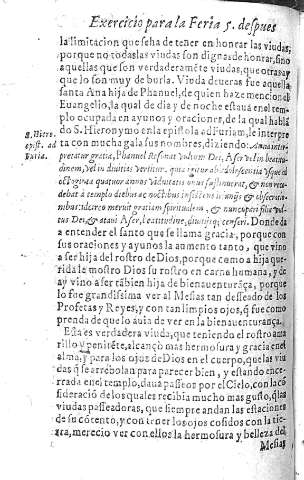 Exercicio para la Feria 5. despues
la limitacion que se ha de tener en honrar las viudas;
porque no todas las viudas son dignas de honrar, sino
aquellas que son verdaderaméte viudas, que otras ay
que lo son muy de burla. Viuda de veras fue aquella
santa Ana hija de Phanuel, de quien haze mencion el
Euangelio, la qual de dia y de noche estaua en el tem
plo ocupada en ayunos y oraciones, de la qual hablá
do S. Hieronymo en la epistola ad Furiam, le interpre
ta con mucha gala sus nombres, diziendo: Anna inter
S. Hiero.
epist. ad
Furia.
pretatur gratia, Phanuel Resonat vultum Dei, Aser vel in beatitu
dinem, vel in diuitias vertitur. quia igitur ab adolescentia vsque ad
octoginta quatuor annos viduitatis onus sustinuerat, & non rece
debat à templo diebus ac noctibus insistens ieiunijs & obsecratio
nibus: idcirco meruit gratiam spiritualem, & nuncupari filia vul
tus Dei, & ataui Aser, beatitudine, diuitijsq; censeri. Donde da
a entender el santo que se llama gracia, porque con
sus oraciones y ayunos la aumento tanto, que vino
a ser hija del rostro de Dios, porque como a hija que-
rida le mostro Dios su rostro en carne humana, y de
ay vino a ser tábien hija de bienauenturáça, porque
lo fue grandissima ver al Mesias tan desseado de los
Profetas y Reyes, y con tan limpios ojos, q́ fue como
prenda de que lo auia de ver en la bienauenturança.
Esta es verdadera viuda, que teniendo el rostro ama
rillo y peniféte, alcançò mas hermosura y gracia en el
alma y para los ojos de Dios en el cuerpo, que las viu
das q́ se arrebolan para parecer bien, y estando ence-
rrada en el templo, daua passeos por el Cielo, con la có
sideració de los quales recibia mucho mas gusto, q́ las
viudas passeadoras, que siempre andan las estaciones
de su cótento, y con tener los ojos cosidos con la tie-
rra, merecio ver con ellos la hermosura y belleza del
Mesias